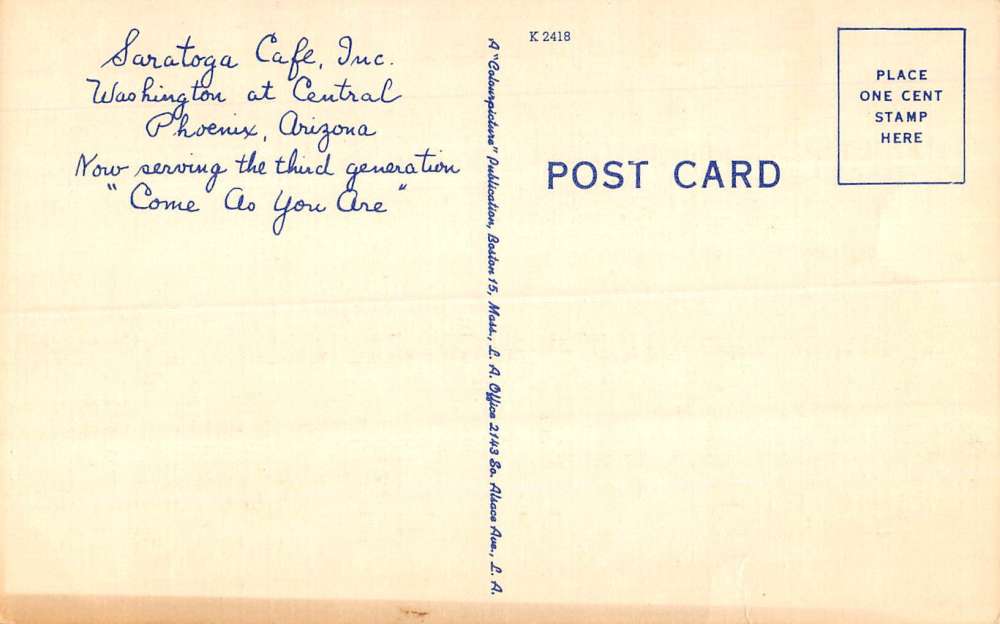 Saratoga Cafe, Inc.
Washington at Central
Phoenix, Arizona
Now serving the third generation
"Come As You Are"
A "Colourpicture" Publication, Boston 15, Mass., L. A. Office 2143 So. Alsace Ave., L. A.
K 2418
POST CARD
PLACE
ONE CENT
STAMP
HERE